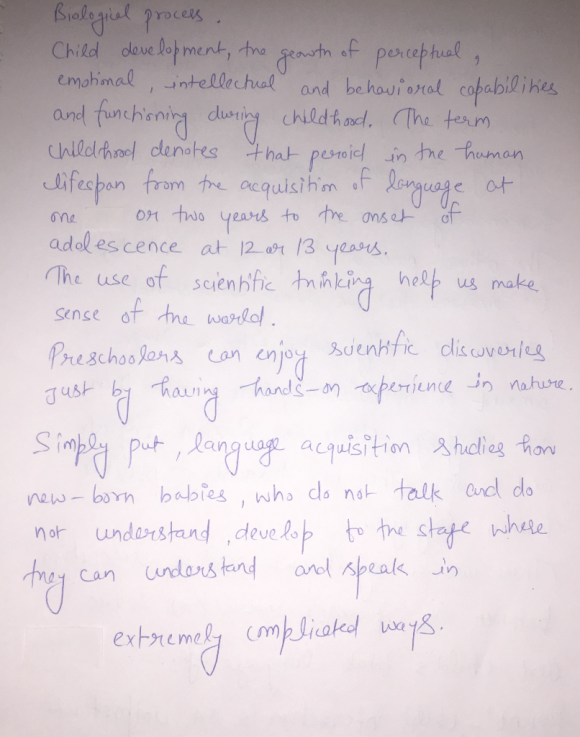 Biological process.
Child development, the growth of perceptual,
emotional, intellectual and behavioral capabilities
and functioning during childhood. The term
childhood denotes that peroid in the human
lifespan from the acquisition of language at
one or two years to the onset of
adolescence at 12 or 13 years.
The use of scientific thinking help us make
sense of the world.
Preschoolers can enjoy scientific discoveries
just by having hands-on experience in nature.
Simply put, language acquisition studies how
new-born babies, who do not talk and do
not understand, develop to the stage where
they can understand and speak in
extremely complicated ways.